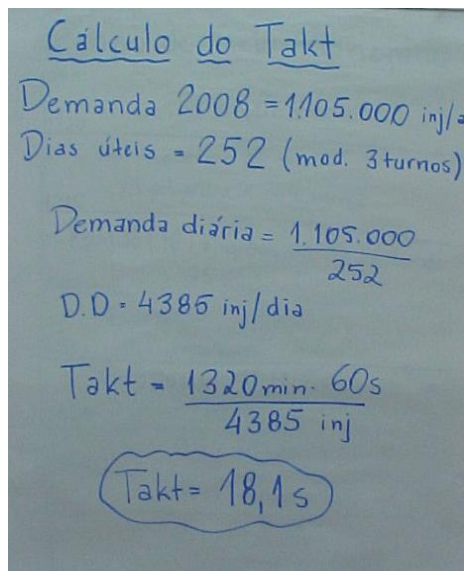 Cálculo do Takt
Demanda 2008 = 1.105.000 inj/a
Dias úteis = 252 (mod. 3 turnos)
Demanda diária = 1.105.000
252
D.D = 4385 inj/dia
Takt = 1320 min. 60s
4385 inj
Takt = 18,1 s